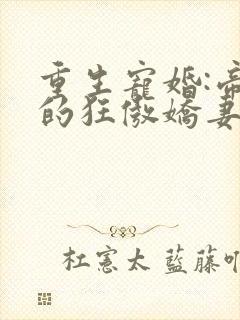 重生寵婚:帝
的狂傲嬌妻
杜憲太 藍藤